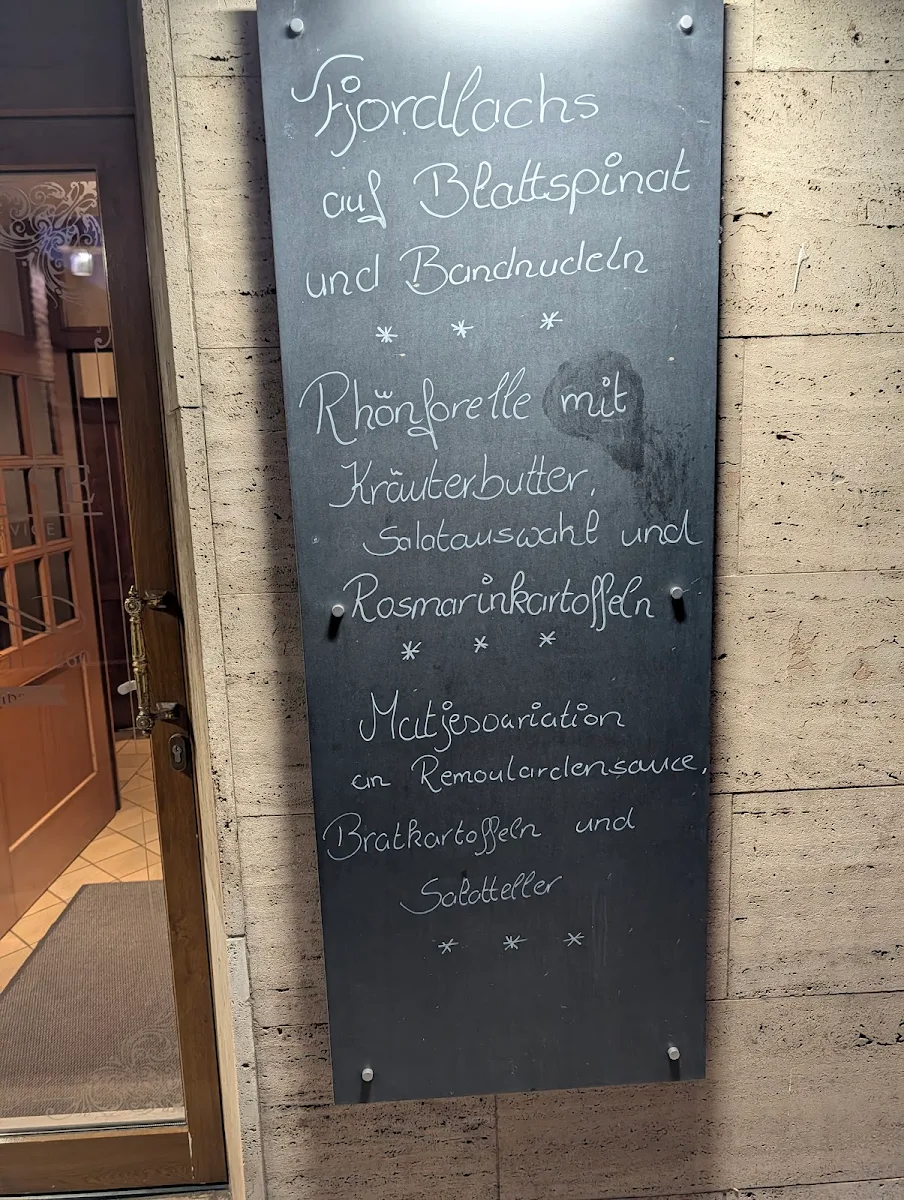 Fjordlachs
auf Blattspinat
und Bandnudeln
* * *
Rhönforelle mit
Kräuterbutter,
Salatauswahl und
Rosmarinkartoffeln
* * *
Matjesvariation
an Remoulardensauce,
Bratkartoffeln und
Salatteller
* * *